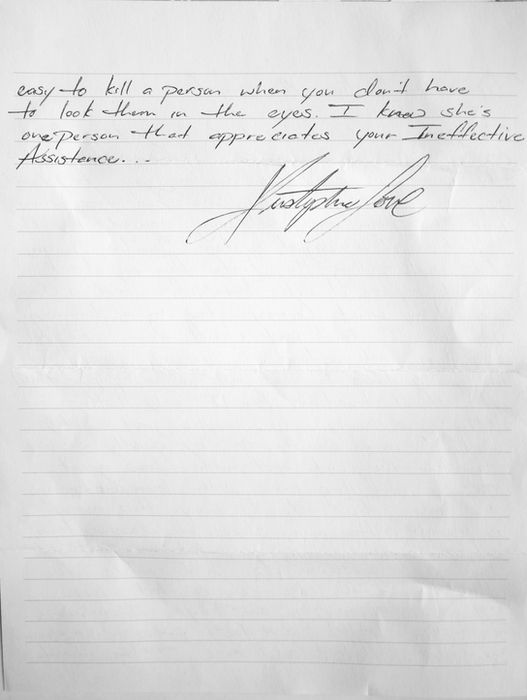 easy to kill a person when you don't have
to look them in the eyes. I know she's
one person that appreciates your Ineffective
Assistance...
Kristopher Love